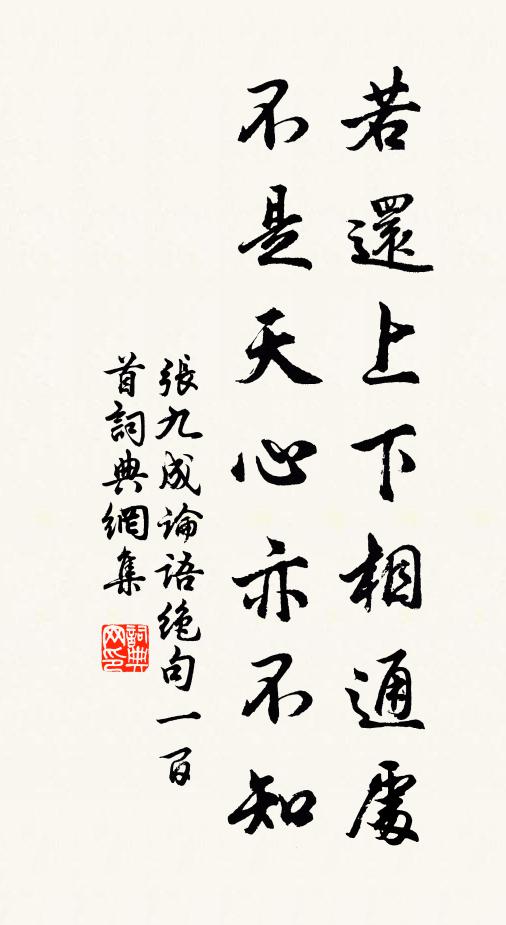 若還上下相通處
不是天心亦不知
張九成論語絶句一百
首詞典網集
詞典
网印